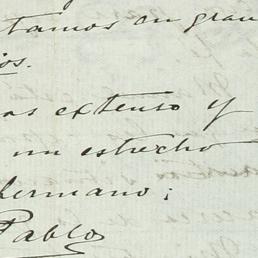 tamos en gran
ios.
as extenso y
un estrecho
hermano;
Pablo